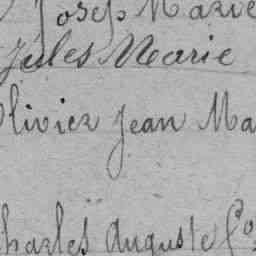 Joseph Marie
Jules Marie
Olivier Jean Ma
Charles Auguste Co